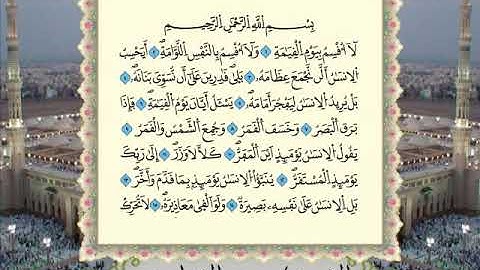 بِسْمِ اللَّهِ الرَّحْمَٰنِ الرَّحِيمِ
لَآ أُقْسِمُ بِيَوْمِ الْقِيَٰمَةِ وَلَآ أُقْسِمُ بِالنَّفْسِ اللَّوَّامَةِ أَيَحْسِبُ
الْإِنسَٰنُ أَلَّن نَّجْمَعَ عِظَامَهُۥ بَلَىٰ قَٰدِرِينَ عَلَىٰ أَن نُّسَوِّيَ بَنَانَهُۥ
بَلْ يُرِيدُ الْإِنسَٰنُ لِيَفْجُرَ أَمَامَهُۥ يَسْـَٔلُ أَيَّانَ يَوْمُ الْقِيَٰمَةِ فَإِذَا
بَرَقَ الْبَصَرُ وَخَسَفَ الْقَمَرُ وَجُمِعَ الشَّمْسُ وَالْقَمَرُ
يَقُولُ الْإِنسَٰنُ يَوْمَئِذٍ أَيْنَ الْمَفَرُّ كَلَّا لَا وَزَرَ إِلَىٰ رَبِّكَ
يَوْمَئِذٍ الْمُسْتَقَرُّ يُنَبَّؤُا الْإِنسَٰنُ يَوْمَئِذٍ بِمَا قَدَّمَ وَأَخَّرَ
بَلِ الْإِنسَٰنُ عَلَىٰ نَفْسِهِۦ بَصِيرَةٌ وَلَوْ أَلْقَىٰ مَعَاذِيرَهُۥ لَا تُحَرِّكْ